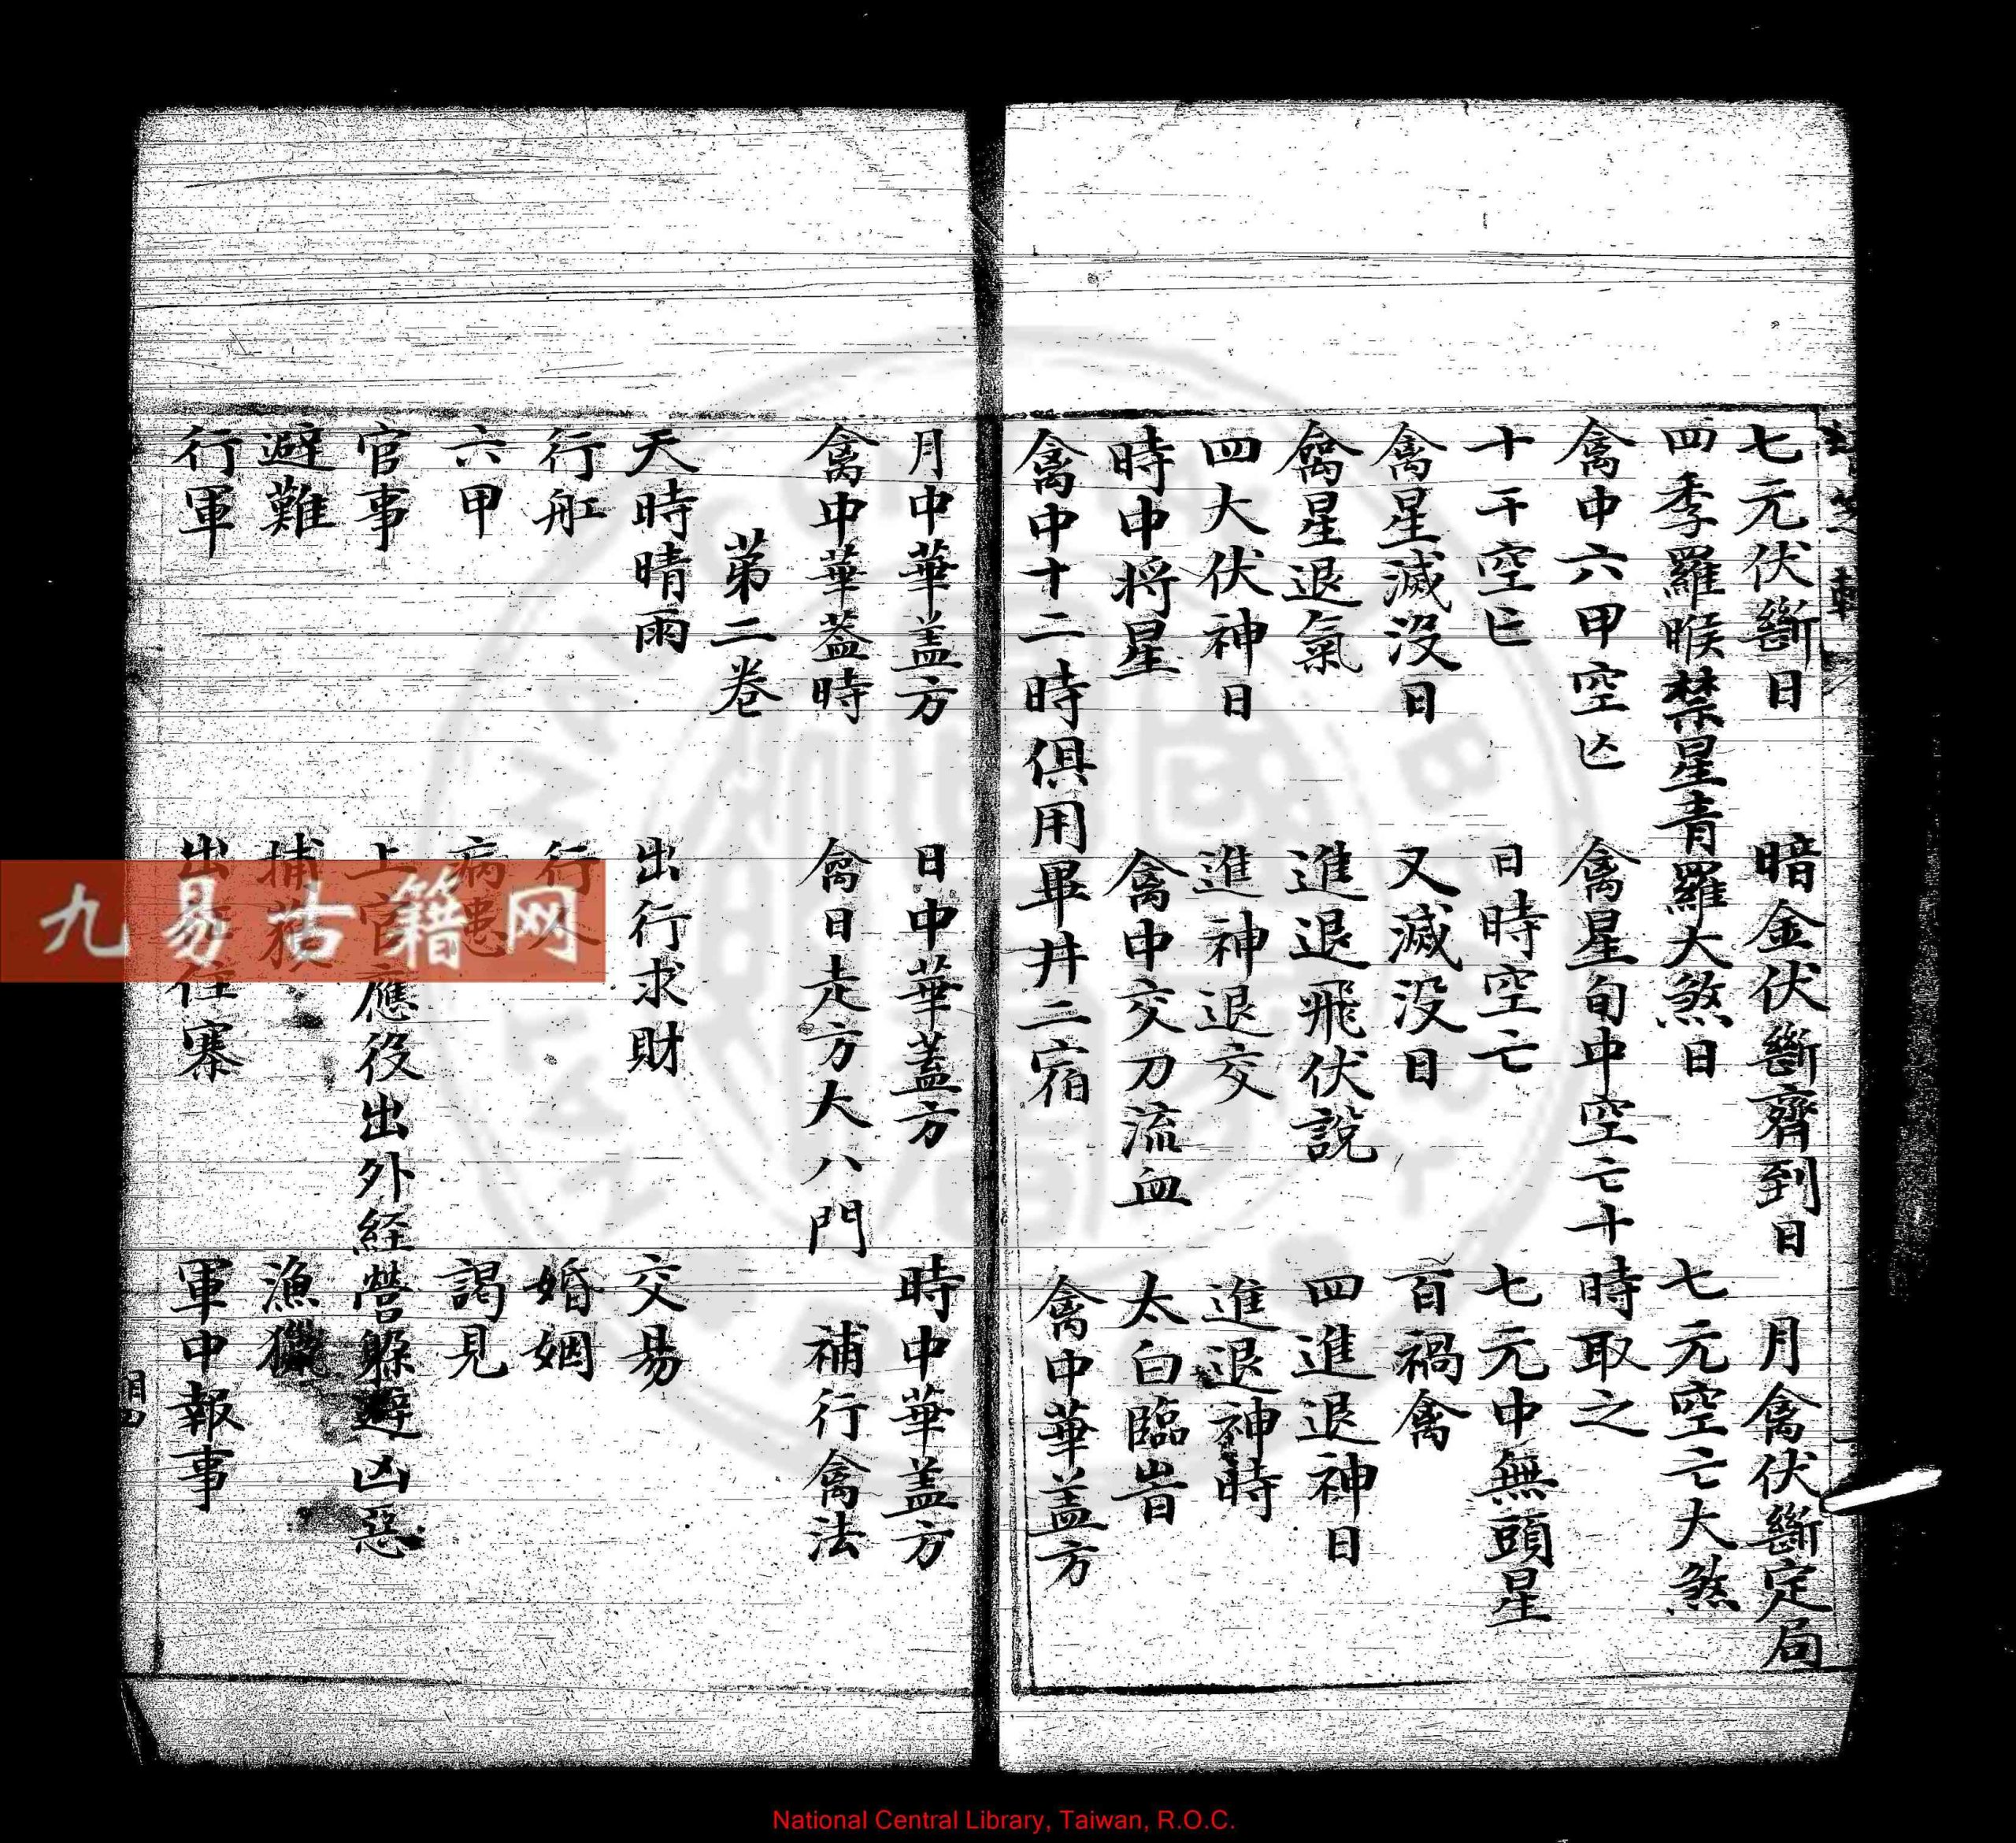 七元伏斷日 暗金伏斷齊到日 月禽伏斷定局
四季羅睺禁星青羅大煞日 七元空亡大煞
禽中六甲空亡 禽星旬中空亡十時取之
十干空亡 日時空亡 七元中無頭星
禽星滅沒日 又滅沒日 百禍禽
禽星退氣 進退飛伏説 四進退神日
四大伏神日 進神退交 進退神時
時中将星 禽中交刀流血 太白臨嵵
禽中十二時俱用畢井二宿 禽中華盖方
月中華盖方 日中華盖方 時中華盖方
禽中華蓋時 禽日走方大八門 補行禽法
苐二卷
天時晴雨 出行求財 交易
行舡 行人 婚姻
六甲 病患 謁見
官事 上官應役出外経營躲避凶惡
避難 捕 漁獵
行軍 出 住寨 軍中報事
九易古籍网
National Central Library, Taiwan, R.O.C.